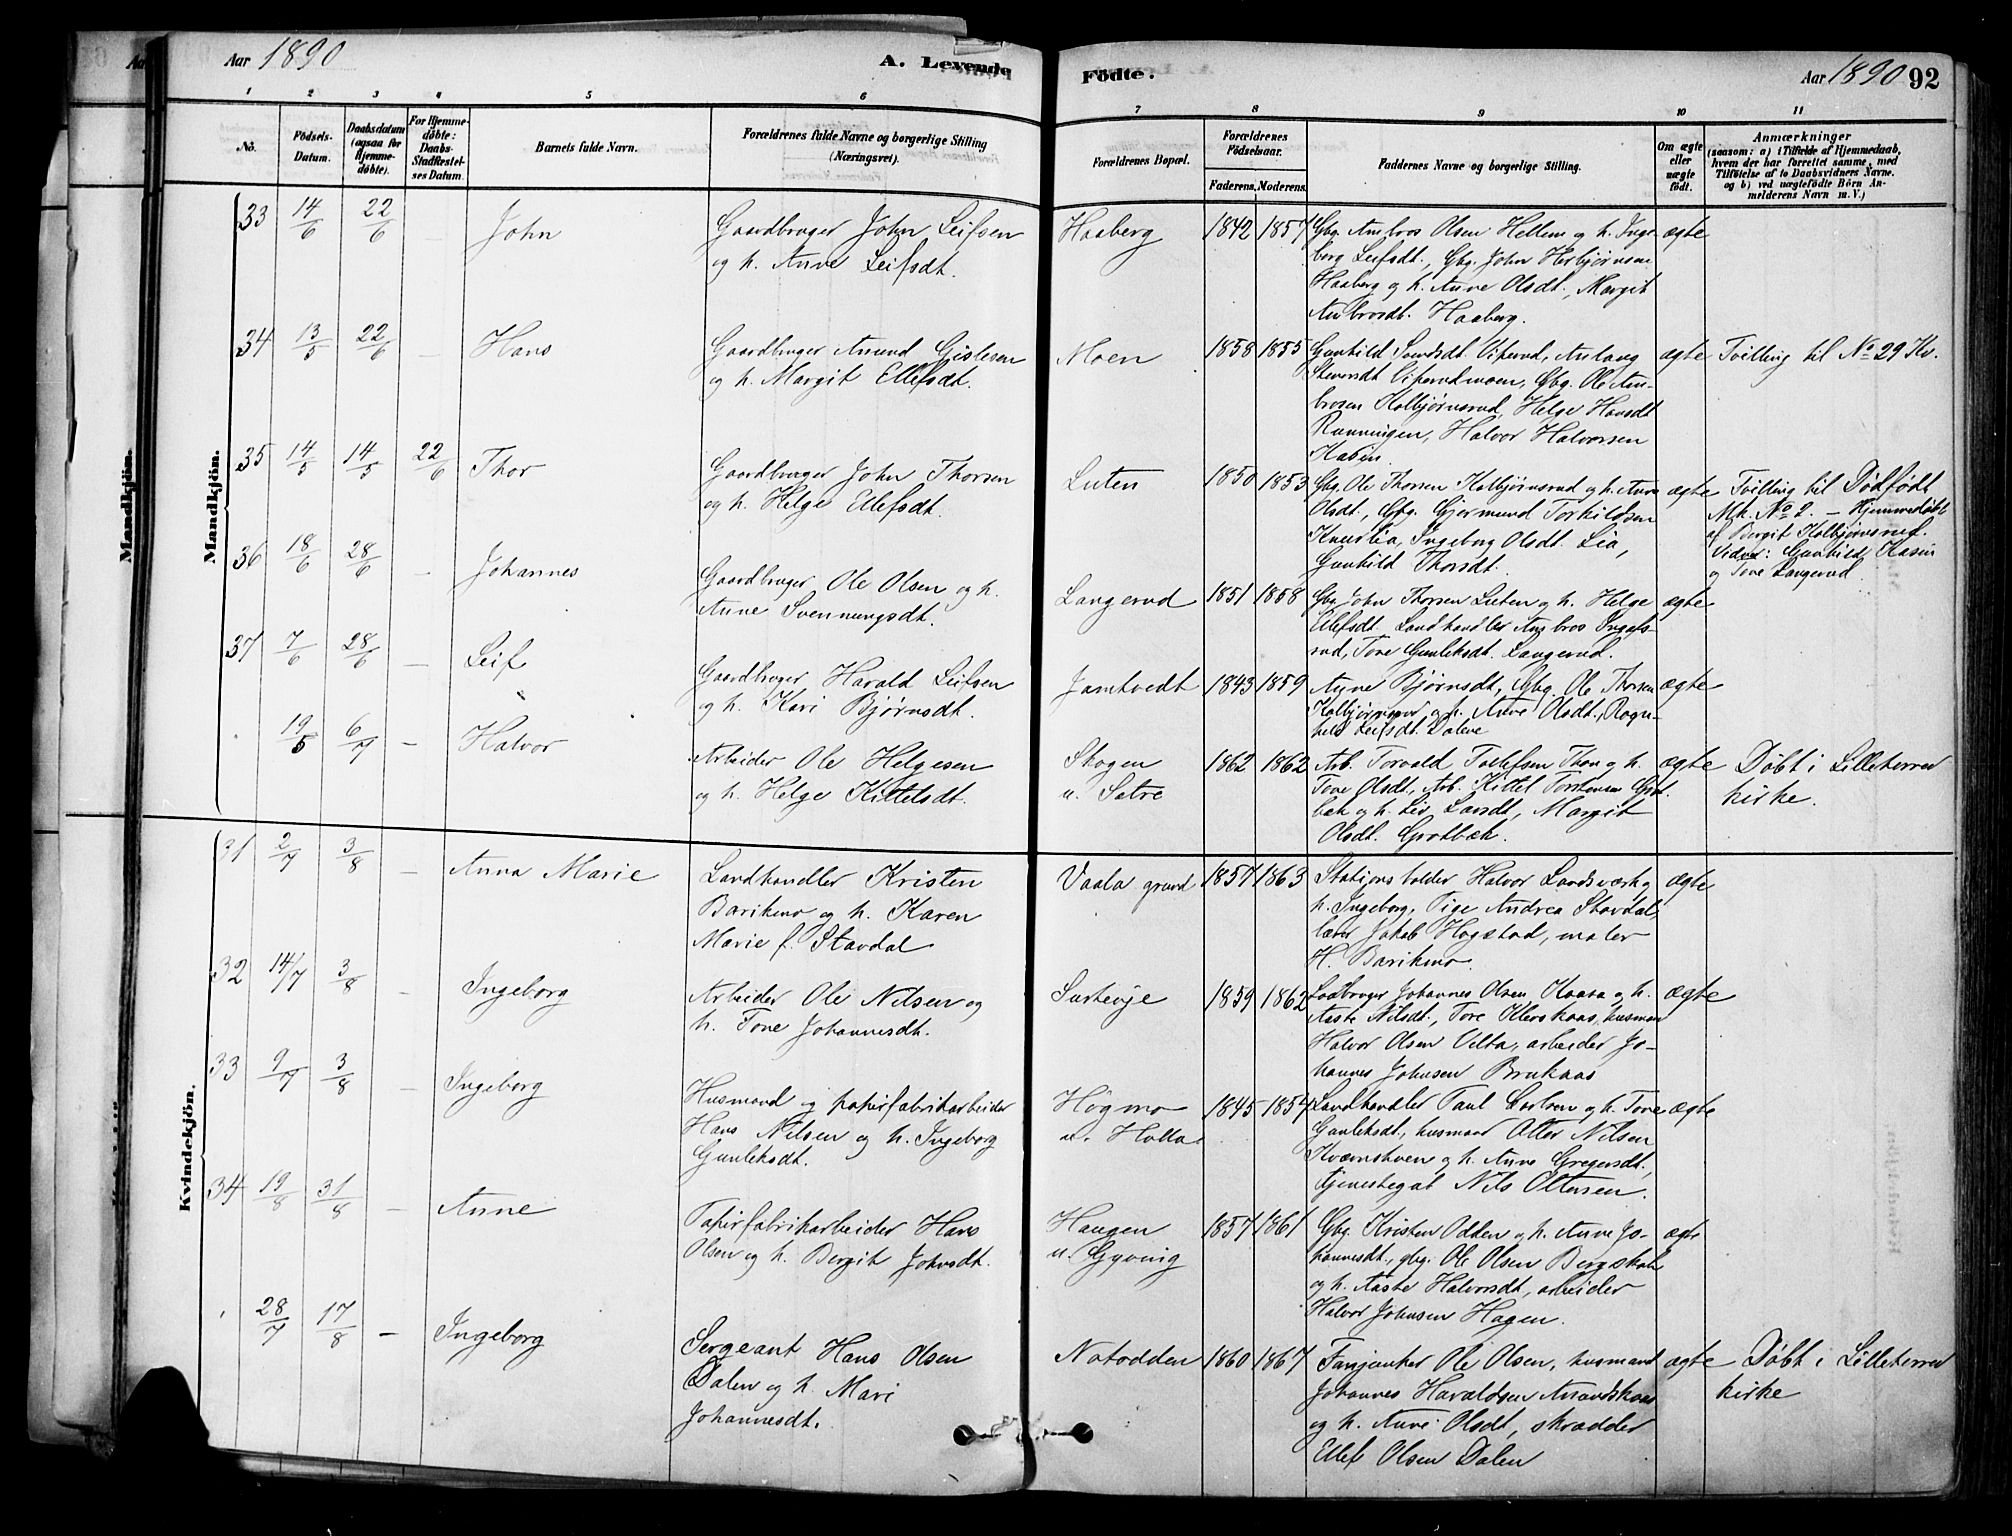 Aar 1890
A. Levende
Födte.
Aar 1890 92
1 2 3 4 5 6 7 8 9 10 11
No.
Födsels-
Datum.
Daabsdatum
(ogsaa for
Hjemme-
döbte).
For Hjemme-
döbte:
Daabs-
Stadfæstel-
ses Datum.
Barnets fulde Navn.
Forældrenes fulde Navne og borgerlige Stilling
(Næringsvei).
Forældrenes Bopæl.
Forældrenes
Födselsaar.
Faderens. Moderens.
Faddernes Navne og borgerlige Stilling.
Om ægte
eller
uægte
födt.
Anmærkninger
(saasom: a) i Tilfælde af Hjemmedaab,
hvem der har forrettet samme, med
Tilföielse af to Daabsvidners Navne.
og b) ved uægtefödte Börn An-
melderens Navn m. V.)
Mandkjön.
Mandkjön.
33 14/6 22/6 – John
Gaardbruger John Leifsen
og h. Anne Leifsdt.
Haaberg 1842 1857
Gbg. Ambros Olsen Hellem og h. Inge-
berg Leifsdt., Gbg. John Herbjørnsen
Haaberg og h. Anne Olsdt., Margit
Ambrosdt. Haaberg.
ægte
34 13/5 22/6 – Hans
Gaardbruger Amund Gislesen
og h. Margit Ellefsdt.
Moen 1858 1855
Gunhild Svendsdt. Viperud, Anlaug
Steversdt Viperudmoen, Gbg. Ole Am-
brosen Kolbjørnsrud, Helge Hansdt
Runningen, Halvor Halvorsen
Kasin.
ægte
Tvilling til No 29 Kv.
35 14/5 14/5 22/6 Thor
Gaardbruger John Thorsen
og h. Helge Ellefsdt.
Luten 1850 1853
Gbg. Ole Thorsen Kolbjørnsrud og h. Anne
Olsdt., Gbg. Gjermund Torkildsen
Knuslia, Ingeborg Olsdt. Lia,
Gunhild Thorsdt.
ægte
Tvilling til Dødfødt
Mk. No 2. – Hjemmedøbt
af Bergit Kolbjørnsrud.
Vidner: Gunhild Kasin
og Tone Langerud
36 18/6 28/6 – Johannes
Gaardbruger Ole Olsen og h.
Anne Svennungsdt.
Langerud 1851 1858
Gbg. John Thorsen Luten og h. Helge
Ellefsdt. Landhandler Ambros Ingolfs-
rud, Tone Gunleksdt. Langerud.
ægte
37 7/6 28/6 – Leif
Gaardbruger Harald Leifsen
og h. Kari Bjørnsdt.
Jamtvedt 1843 1859
Anne Bjørnsdt, Gbg. Ole Thorsen
Kolbjørnsrud og h. Anne Olsdt., Ragn-
hild Leifsdt. Dalene
ægte
19/5 6/7 – Halvor
Arbeider Ole Helgesen
og h. Helge Kittelsdt.
Skogen
u. Sætre
1862 1862
Arb. Torvald Tollefsen Thon og h.
Tone Olsdt, Arb. Kittel Torstensen Grot-
bæk og h. Liv Larsdt, Margit
Olsdt. Grotbæk.
ægte
Døbt i Lilleherred
kirke.
Kvindekjön.
31 2/7 3/8 – Anna Marie
Landhandler Kristen
Barikmo og h. Karen
Marie f. Stavdal
Vaala grund 1857 1863
Stationsholder Halvor Landsværk og
h. Ingeborg, Pige Andrea Stavdal,
lærer Jakob Høgstad, maler
H. Barikmo.
ægte
32 14/7 3/8 – Ingeborg
Arbeider Ole Nilsen og
h. Tone Johannesdt.
Surtevje 1859 1862
Johannes Olsen Kaasa og h.
Aaste Nilsdt., Tore Kleivkaas, husmand
Halvor Olsen Vilta, arbeider Jo-
hannes Johnsen Brukaas
ægte
33 9/7 3/8 – Ingeborg
Husmand og papirfabrikarbeider
Hans Nilsen og h. Ingeborg
Gunleksdt.
Høgmo
u. Holla
1845 1854
Landhandler Paul Carlsen og h. Tone
Gunleksdt., husmand Otter Nilsen
Kvernstuen og h. Anne Gregersdt.,
tjenestegut Nils Ottersen.
ægte
34 19/8 31/8 – Anne
Papirfabrikarbeider Hans
Olsen og h. Bergit Johnsdt.
Haugen
u. Gyving
1857 1861
Gbg. Kristen Odden og h. Anne Jo-
hannesdt., gbg. Ole Olsen Bergskaas
og h. Aaste Halvorsdt, arbeider
Halvor Johnsen Hagen.
ægte
28/7 17/8 – Ingeborg
Sergeant Hans Olsen
Dalen og h. Mari
Johannesdt.
Notodden 1860 1867
Fanjunker Ole Olsen, husmand
Johannes Haraldsen Amundskaas
og h. Anne Olsdt, skrædder
Ellef Olsen Dalen
ægte
Døbt i Lilleherred
kirke